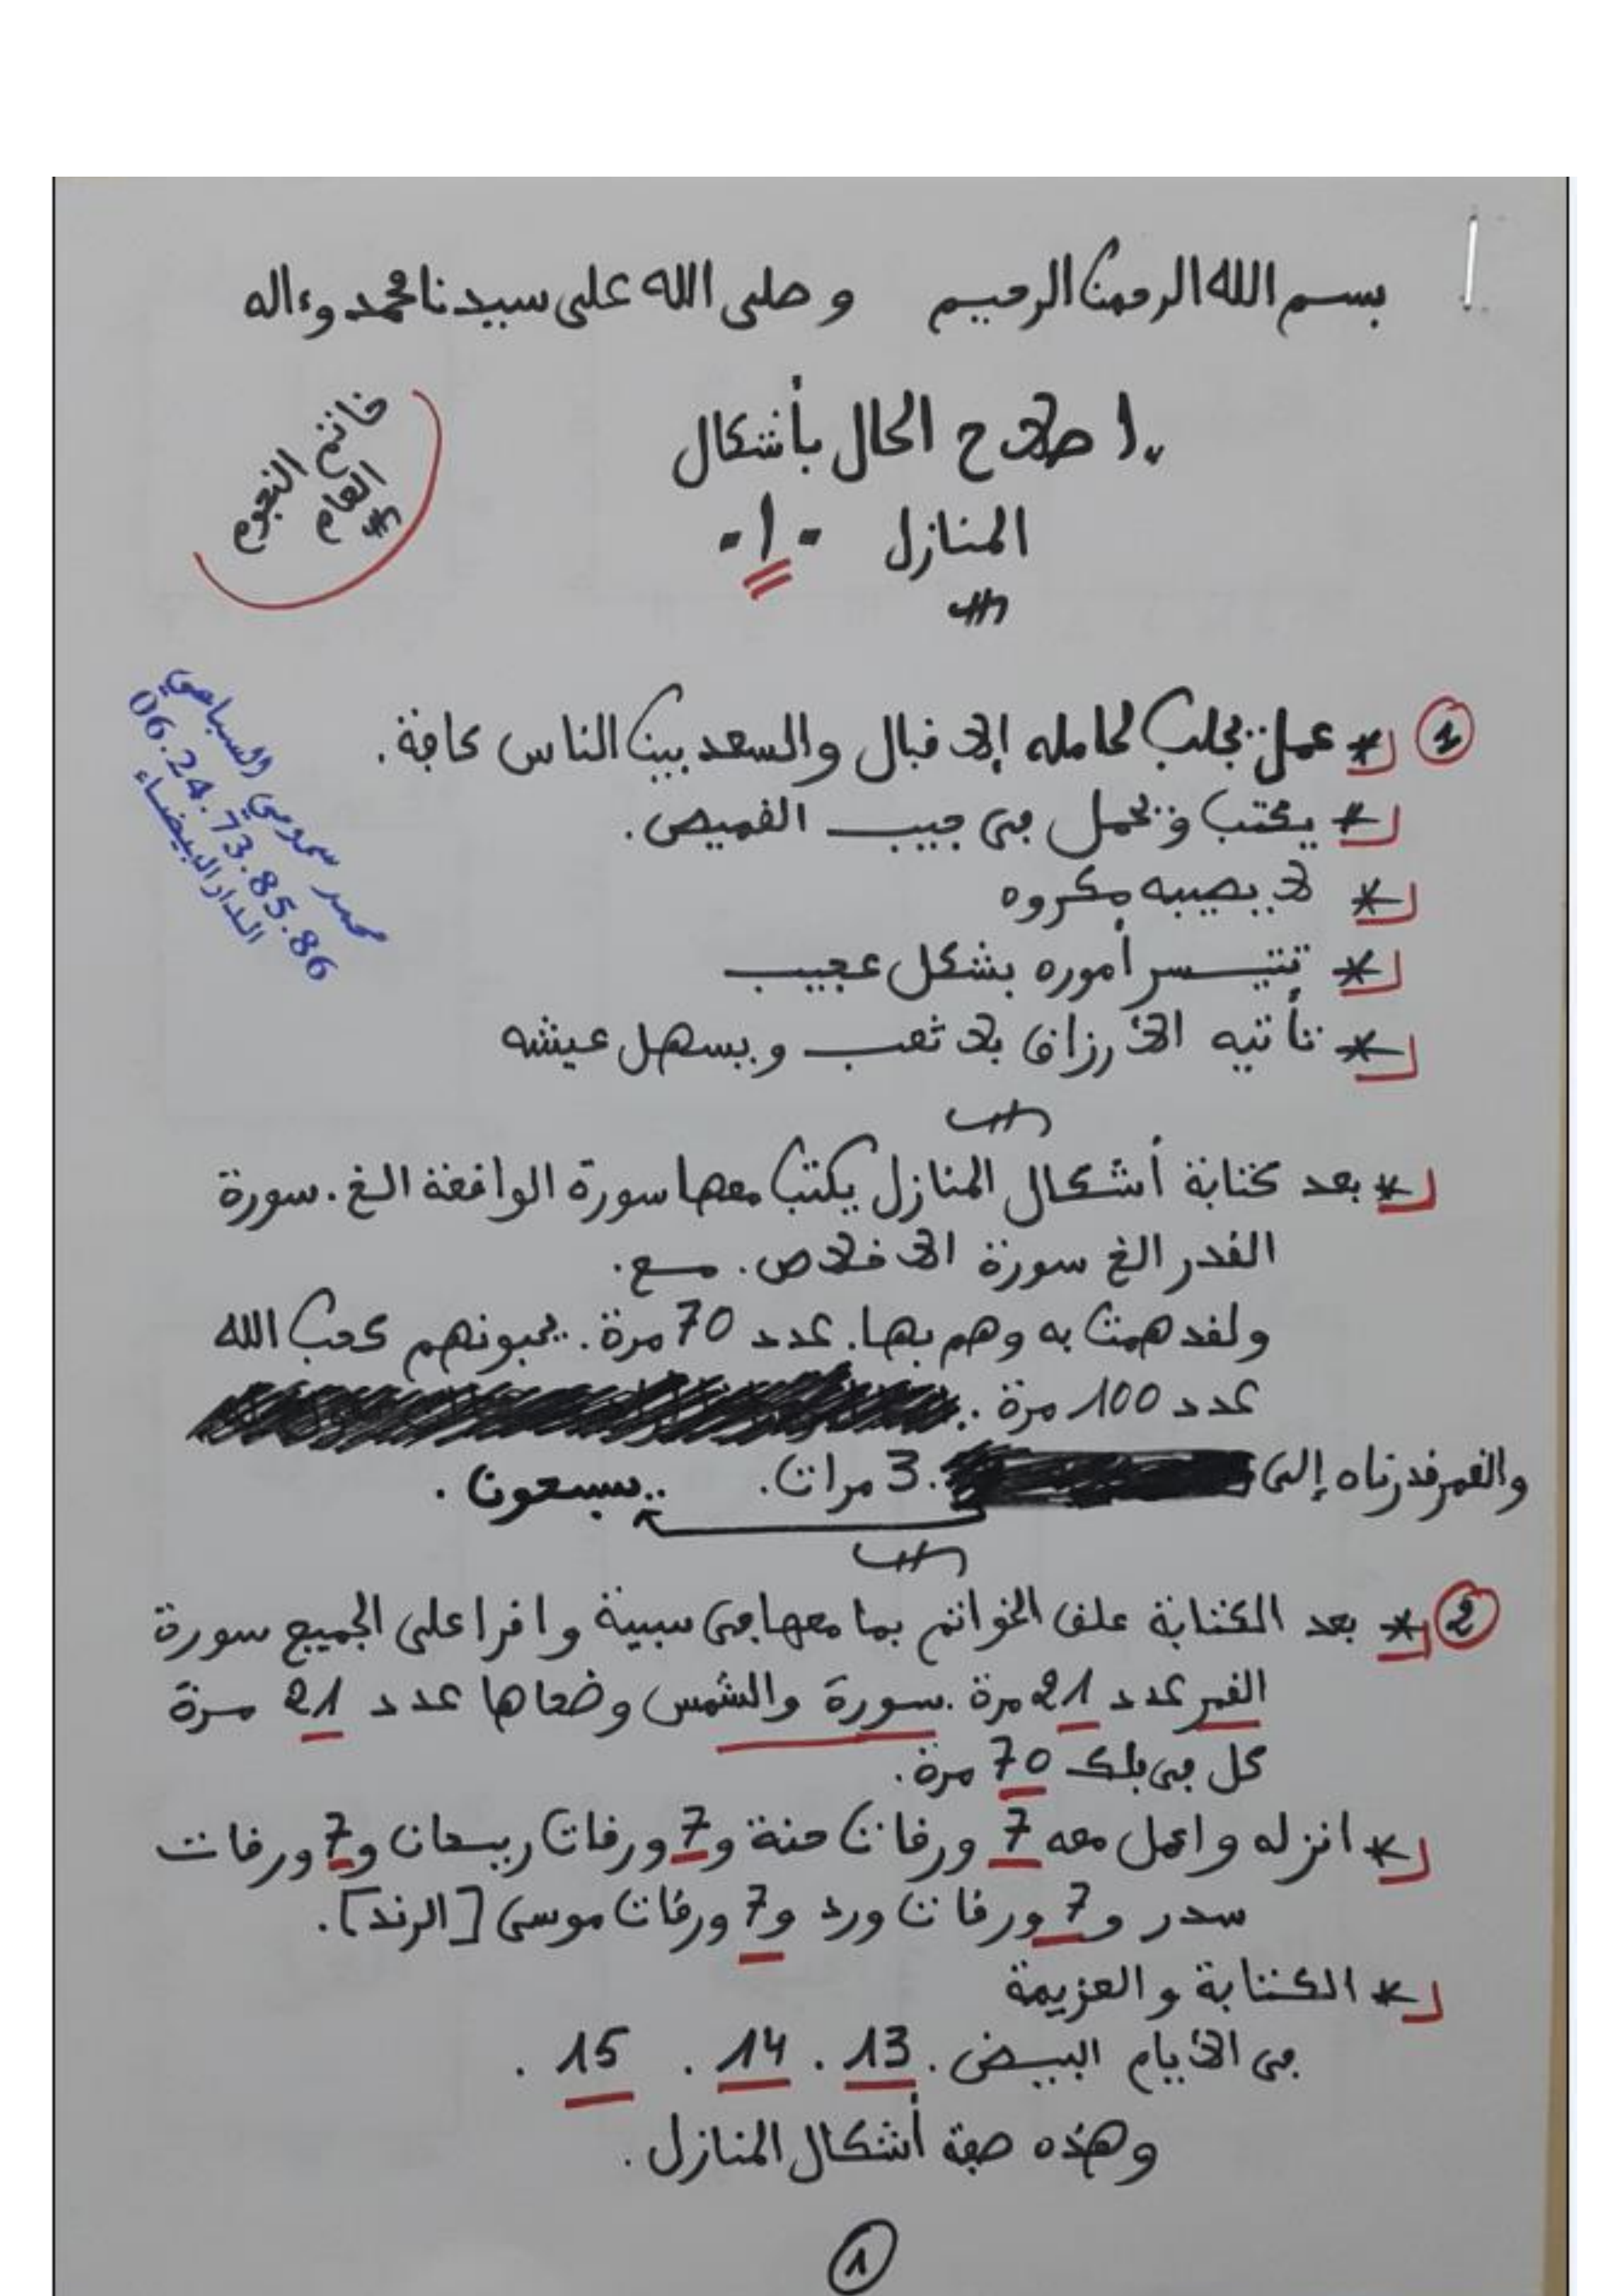 بسم الله الرحمن الرحيم وصلى الله على سيدنا محمد وءاله
إصلاح الحال بأشكال
المنازل -1-
خاتم النجوم
العام
محمد سمومي السباعي
06.24.73.85.86
الدار البيضاء
1 * عمل يجلب لحامله الإقبال والسعد بين الناس كافة.
* يكتب ويحمل في جيب القميص.
* لا يصيبه مكروه
* تتيسر أموره بشكل عجيب
* تأتيه الأرزاق بلا تعب ويسهل عيشه
* بعد كتابة أشكال المنازل يكتب معها سورة الواقعة الخ. سورة
القدر الخ سورة الإخلاص. مع.
ولقد همت به وهم بها. عدد 70 مرة. يحبونهم كحب الله
عدد 100 مرة.
والقمر قدرناه إلى 3 مرات. سبعون.
2 * بعد الكتابة علق الخواتم بما معها في سبيبة واقرا على الجميع سورة
القمر عدد 21 مرة. سورة والشمس وضحاها عدد 21 مرة
كل في فلك 70 مرة.
* انزله واعمل معه 7 ورقات حنة و7 ورقات ريحان و7 ورقات
سدر و7 ورقات ورد و7 ورقات موسى [الرند].
* الكتابة والعزيمة
في الأيام البيض. 13. 14. 15.
وهذه صفة أشكال المنازل.
1